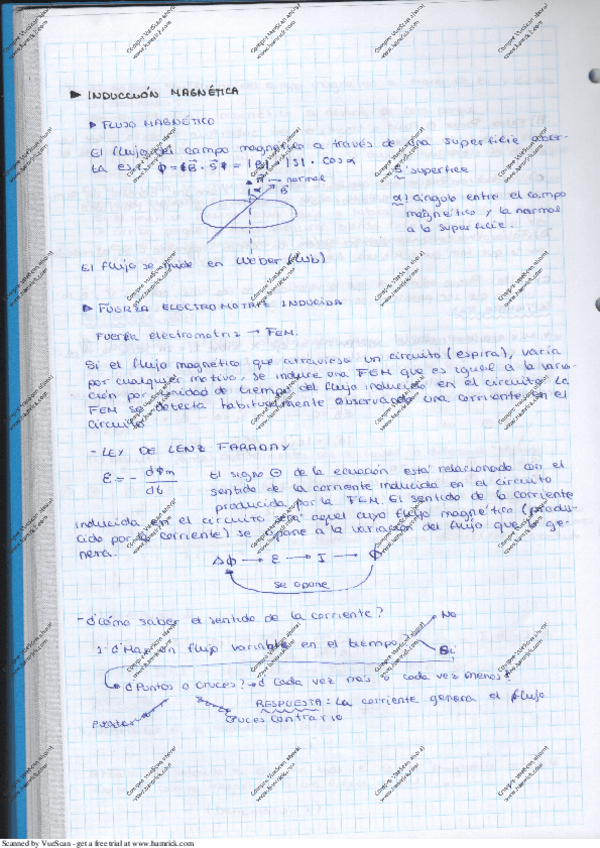 ▶ INDUCCIÓN MAGNÉTICA
▶ FLUJO MAGNÉTICO
El flujo del campo magnético a través de una superficie abier-
ta es: Φ = B⃗ · S⃗ = |B| · |S| · cos α
S: superficie
normal
α
B
α: ángulo entre el campo
magnético y la normal
a la superficie.
El flujo se mide en WEBER (Wb)
▶ FUERZA ELECTROMOTRIZ INDUCIDA
Fuerza electromotriz → FEM.
Si el flujo magnético que atraviesa un circuito (espira), varía
por cualquier motivo, se induce una FEM que es igual a la varia-
ción por unidad de tiempo del flujo inducido en el circuito. La
FEM se detecta habitualmente observando una corriente en el
circuito.
- LEY DE LENZ FARADAY
ε = - dΦm / dt
El signo ⊖ de la ecuación está relacionado con el
sentido de la corriente inducida en el circuito
producida por la FEM. El sentido de la corriente
inducida en el circuito será aquel cuyo flujo magnético (produ-
cido por la corriente) se opone a la variación del flujo que lo ge-
nera.
ΔΦ → ε → I → Φ
se opone
- ¿Cómo saber el sentido de la corriente?
No
1. ¿Hay un flujo variable en el tiempo?
Sí
¿Puntos o cruces? → ¿Cada vez más o cada vez menos?
RESPUESTA: La corriente genera el flujo
Puntos
Cruces
contrario
Scanned by VueScan - get a free trial at www.hamrick.com